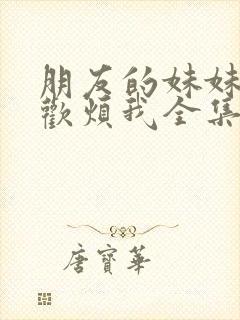 朋友的妹妹
歡煩我全集
唐寶華